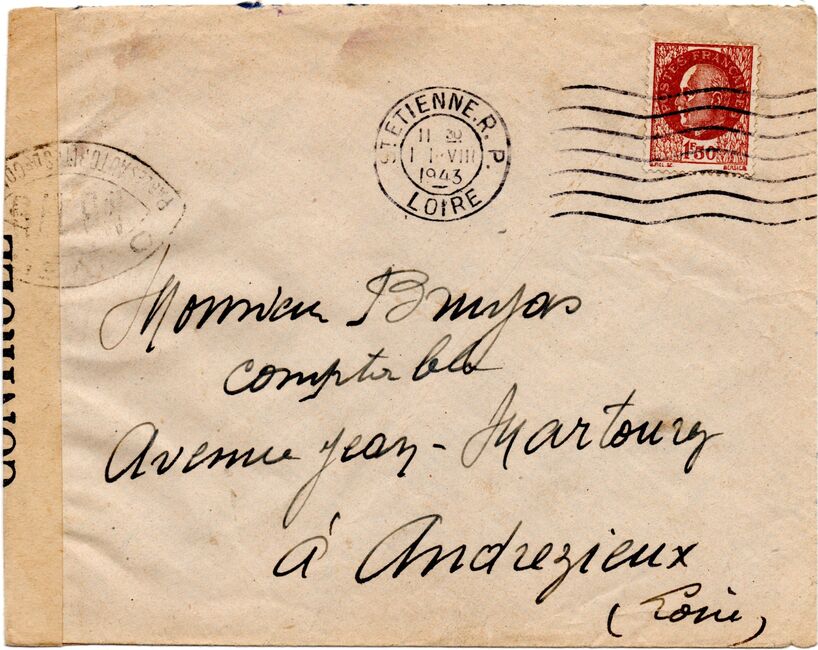 POSTES FRANÇAISES
1F50
ST ETIENNE.R.P.
11 30
1 1-VIII
1943
LOIRE
CONTROLE
Monsieur Bruyas
comptable
Avenue Jean-Martouret
à Andrezieux
(Loire)